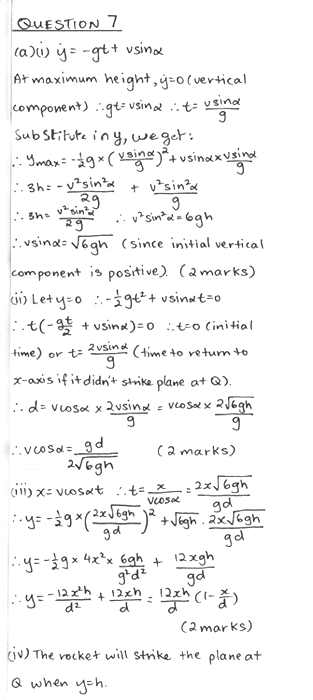 QUESTION 7
(a)(i) ẏ = -gt + vsinα
At maximum height, ẏ=0 (vertical
component) ∴gt=vsinα ∴t= vsinα/g
Substitute in y, we get:
∴ymax = -½g×(vsinα/g)² + vsinα×vsinα/g
∴3h = -v²sin²α/2g + v²sin²α/g
∴3h = v²sin²α/2g ∴v²sin²α=6gh
∴vsinα=√6gh (since initial vertical
component is positive). (2 marks)
(ii) Let y=0 ∴-½gt²+vsinαt=0
∴t(-gt/2 + vsinα)=0 ∴t=0 (initial
time) or t= 2vsinα/g (time to return to
x-axis if it didn't strike plane at Q).
∴d=vcosα × 2vsinα/g = vcosα × 2√6gh/g
∴vcosα= gd/2√6gh (2 marks)
(iii) x=vcosαt ∴t= x/vcosα = 2x√6gh/gd
∴y=-½g×(2x√6gh/gd)² + √6gh . 2x√6gh/gd
∴y=-½g×4x²× 6gh/g²d² + 12xgh/gd
∴y= -12x²h/d² + 12xh/d = 12xh/d (1-x/d)
(2 marks)
(iv) The rocket will strike the plane at
Q when y=h.